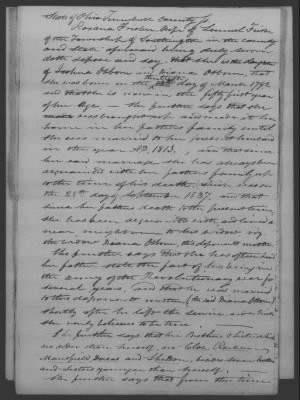 State of Ohio Trumbull County
Roxana Fisher, Wife of Lemuel Fisher
of the township of Southington in the county
and State aforesaid being duly sworn
doth depose and say that She is the daughter
of Joshua Osborn and Diana Osborn, that
She was born on the day of March 1792
and that she is now in the fifty first year
of her Age — She further says that she
was brought up and made it her
home in her fathers family until
She was married to her present husband
in the year A.D. 1813. and that since
her said marriage She has always been
acquainted with her fathers family up
to the time of his death, which was on
the day of September 1837. and that
since her fathers death to the present time
She has been acquainted with, and lived a
near neighbour to his widow viz
the widow Diana Osborn, this deponents mother
She further says that She has often heard
her father state the fact of his being in
the army of the Revolutionary war for
several years, and that he was married
to this deponents mother (the said Diana Osborn)
shortly after he left the service, and which
She verily believes to be true
She further says that her Brothers & Sisters which
are older than herself, are Chloe, Reuben,
Mansfield and Sheldon, besides Seven brothers
and sisters younger than herself.
She further says that from the time